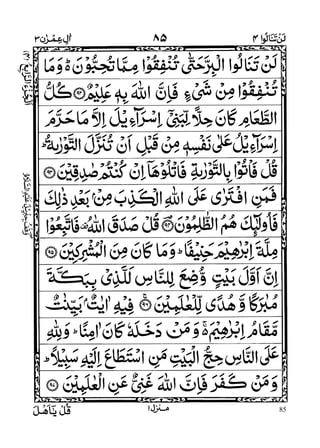 لن تنالوا ۴
۸۵
اٰل عمرٰن ۳
لَنْ تَنَالُوا الْبِرَّ حَتّٰى تُنْفِقُوْا مِمَّا تُحِبُّوْنَ ۬ وَمَا
تُنْفِقُوْا مِنْ شَیْءٍ فَاِنَّ اللّٰهَ بِهٖ عَلِیْمٌ ﴿۹۲﴾ كُلُّ
الطَّعَامِ كَانَ حِلًّا لِّبَنِیْۤ اِسْرَآءِیْلَ اِلَّا مَا حَرَّمَ
اِسْرَآءِیْلُ عَلٰى نَفْسِهٖ مِنْ قَبْلِ اَنْ تُنَزَّلَ التَّوْرٰىةُ ؕ
قُلْ فَاْتُوْا بِالتَّوْرٰىةِ فَاتْلُوْهَاۤ اِنْ كُنْتُمْ صٰدِقِیْنَ ﴿۹۳﴾
فَمَنِ افْتَرٰى عَلَى اللّٰهِ الْكَذِبَ مِنْۢ بَعْدِ ذٰلِكَ
فَاُولٰٓىِٕكَ هُمُ الظّٰلِمُوْنَ ﴿۹۴﴾ قُلْ صَدَقَ اللّٰهُ ۫ فَاتَّبِعُوْا
مِلَّةَ اِبْرٰهِیْمَ حَنِیْفًا ؕ وَمَا كَانَ مِنَ الْمُشْرِكِیْنَ ﴿۹۵﴾
اِنَّ اَوَّلَ بَیْتٍ وُّضِعَ لِلنَّاسِ لَلَّذِیْ بِبَكَّةَ
مُبٰرَكًا وَّهُدًى لِّلْعٰلَمِیْنَ ﴿۹۶﴾ فِیْهِ اٰیٰتٌۢ بَیِّنٰتٌ
مَّقَامُ اِبْرٰهِیْمَ ۚ۬ وَمَنْ دَخَلَهٗ كَانَ اٰمِنًا ؕ وَلِلّٰهِ
عَلَى النَّاسِ حِجُّ الْبَیْتِ مَنِ اسْتَطَاعَ اِلَیْهِ سَبِیْلًا ؕ
وَمَنْ كَفَرَ فَاِنَّ اللّٰهَ غَنِیٌّ عَنِ الْعٰلَمِیْنَ ﴿۹۷﴾
قُلْ یٰۤاَهْلَ
منزل ۱
85